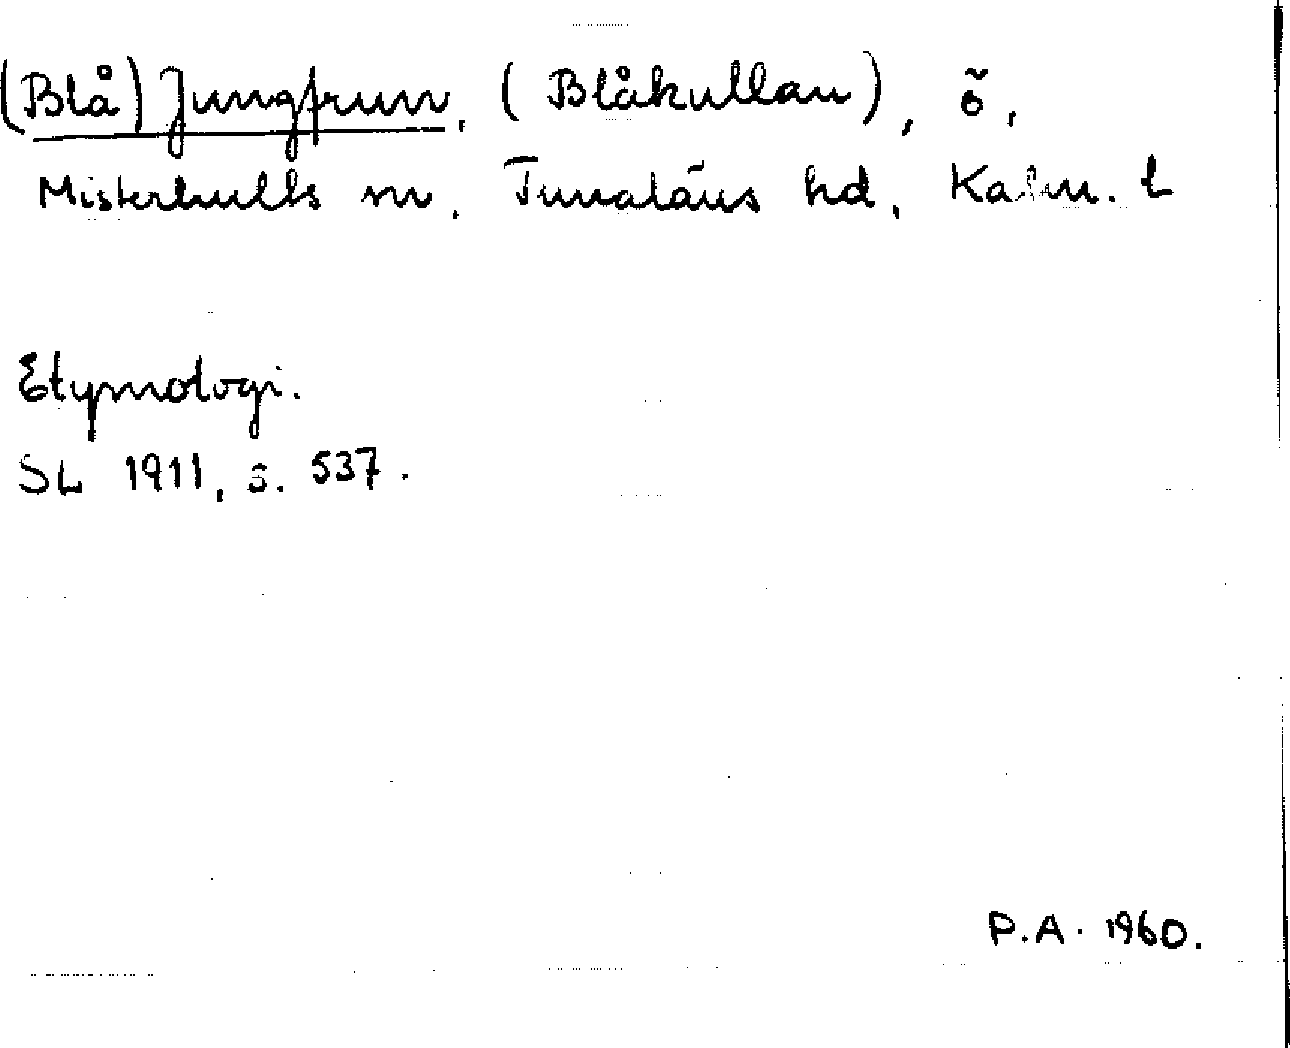 (Blå) Jungfrun, (Blåkullan), ö,
Misterhults sn, Tunaläns hd, Kalm. l
Etymologi.
SL 1911, s. 537.
P.A. 1960.